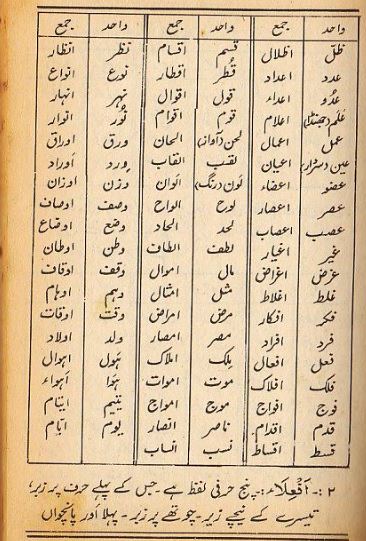 واحد جمع واحد جمع واحد جمع
ظلّ اظلال قسم اقسام نظر انظار
عدد اعداد قُطر اقطار نوع انواع
عدُو اعداء قول اقوال نہر انہار
عَلَم (جھنڈا) اعلام قوم اقوام نُور انوار
عمل اعمال لحن (آواز) الحان ورق اوراق
عین (سردار) اعیان لقب القاب وِرد اَوراد
عضو اعضاء لَون (رنگ) اَلوان وزن اوزان
عصر اعصار لوح الواح وصف اوصاف
عصب اعصاب لحد الحاد وضع اوضاع
غیر اغیار لطف الطاف وطن اوطان
غرض اغراض مال اموال وقف اوقاف
غلط اغلاط مثل امثال وہم اوہام
فکر افکار مرض امراض وقت اوقات
فرد افراد مصر امصار ولد اولاد
فعل افعال مِلک املاک ہَول اہوال
فلک افلاک موت اموات ہَوا اَہواء
فوج افواج موج امواج یتیم ایتام
قدم اقدام ناصر انصار یوم ایّام
قسط اقساط نسب انساب
۲ :۔ اَفْعِلَاء: پنج حرفی لفظ ہے۔ جس کے پہلے حرف پر زبر،
تیسرے کے نیچے زیر۔ چوتھے پر زبر۔ پہلا اور پانچواں